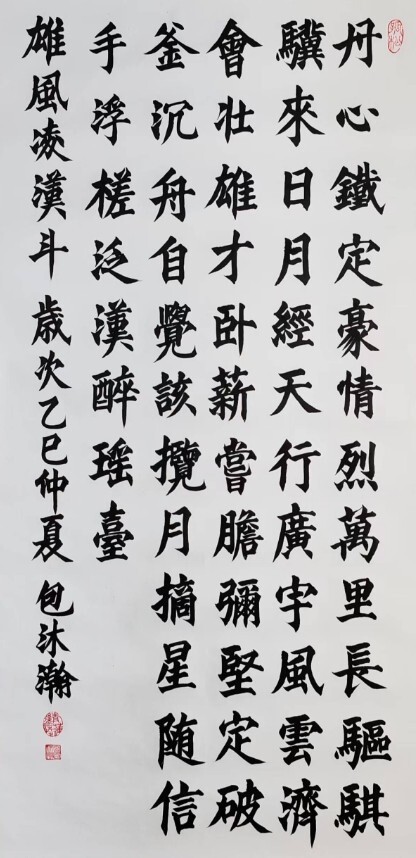 丹心鐵定豪情烈萬里長驅騏
驥來日月經天行廣宇風雲濟
會壯雄才卧薪嘗膽彌堅定破
釜沉舟自覺該攬月摘星随信
手浮槎泛漢醉瑶臺
雄風凌漢斗 歲次乙巳仲夏 包沐瀚